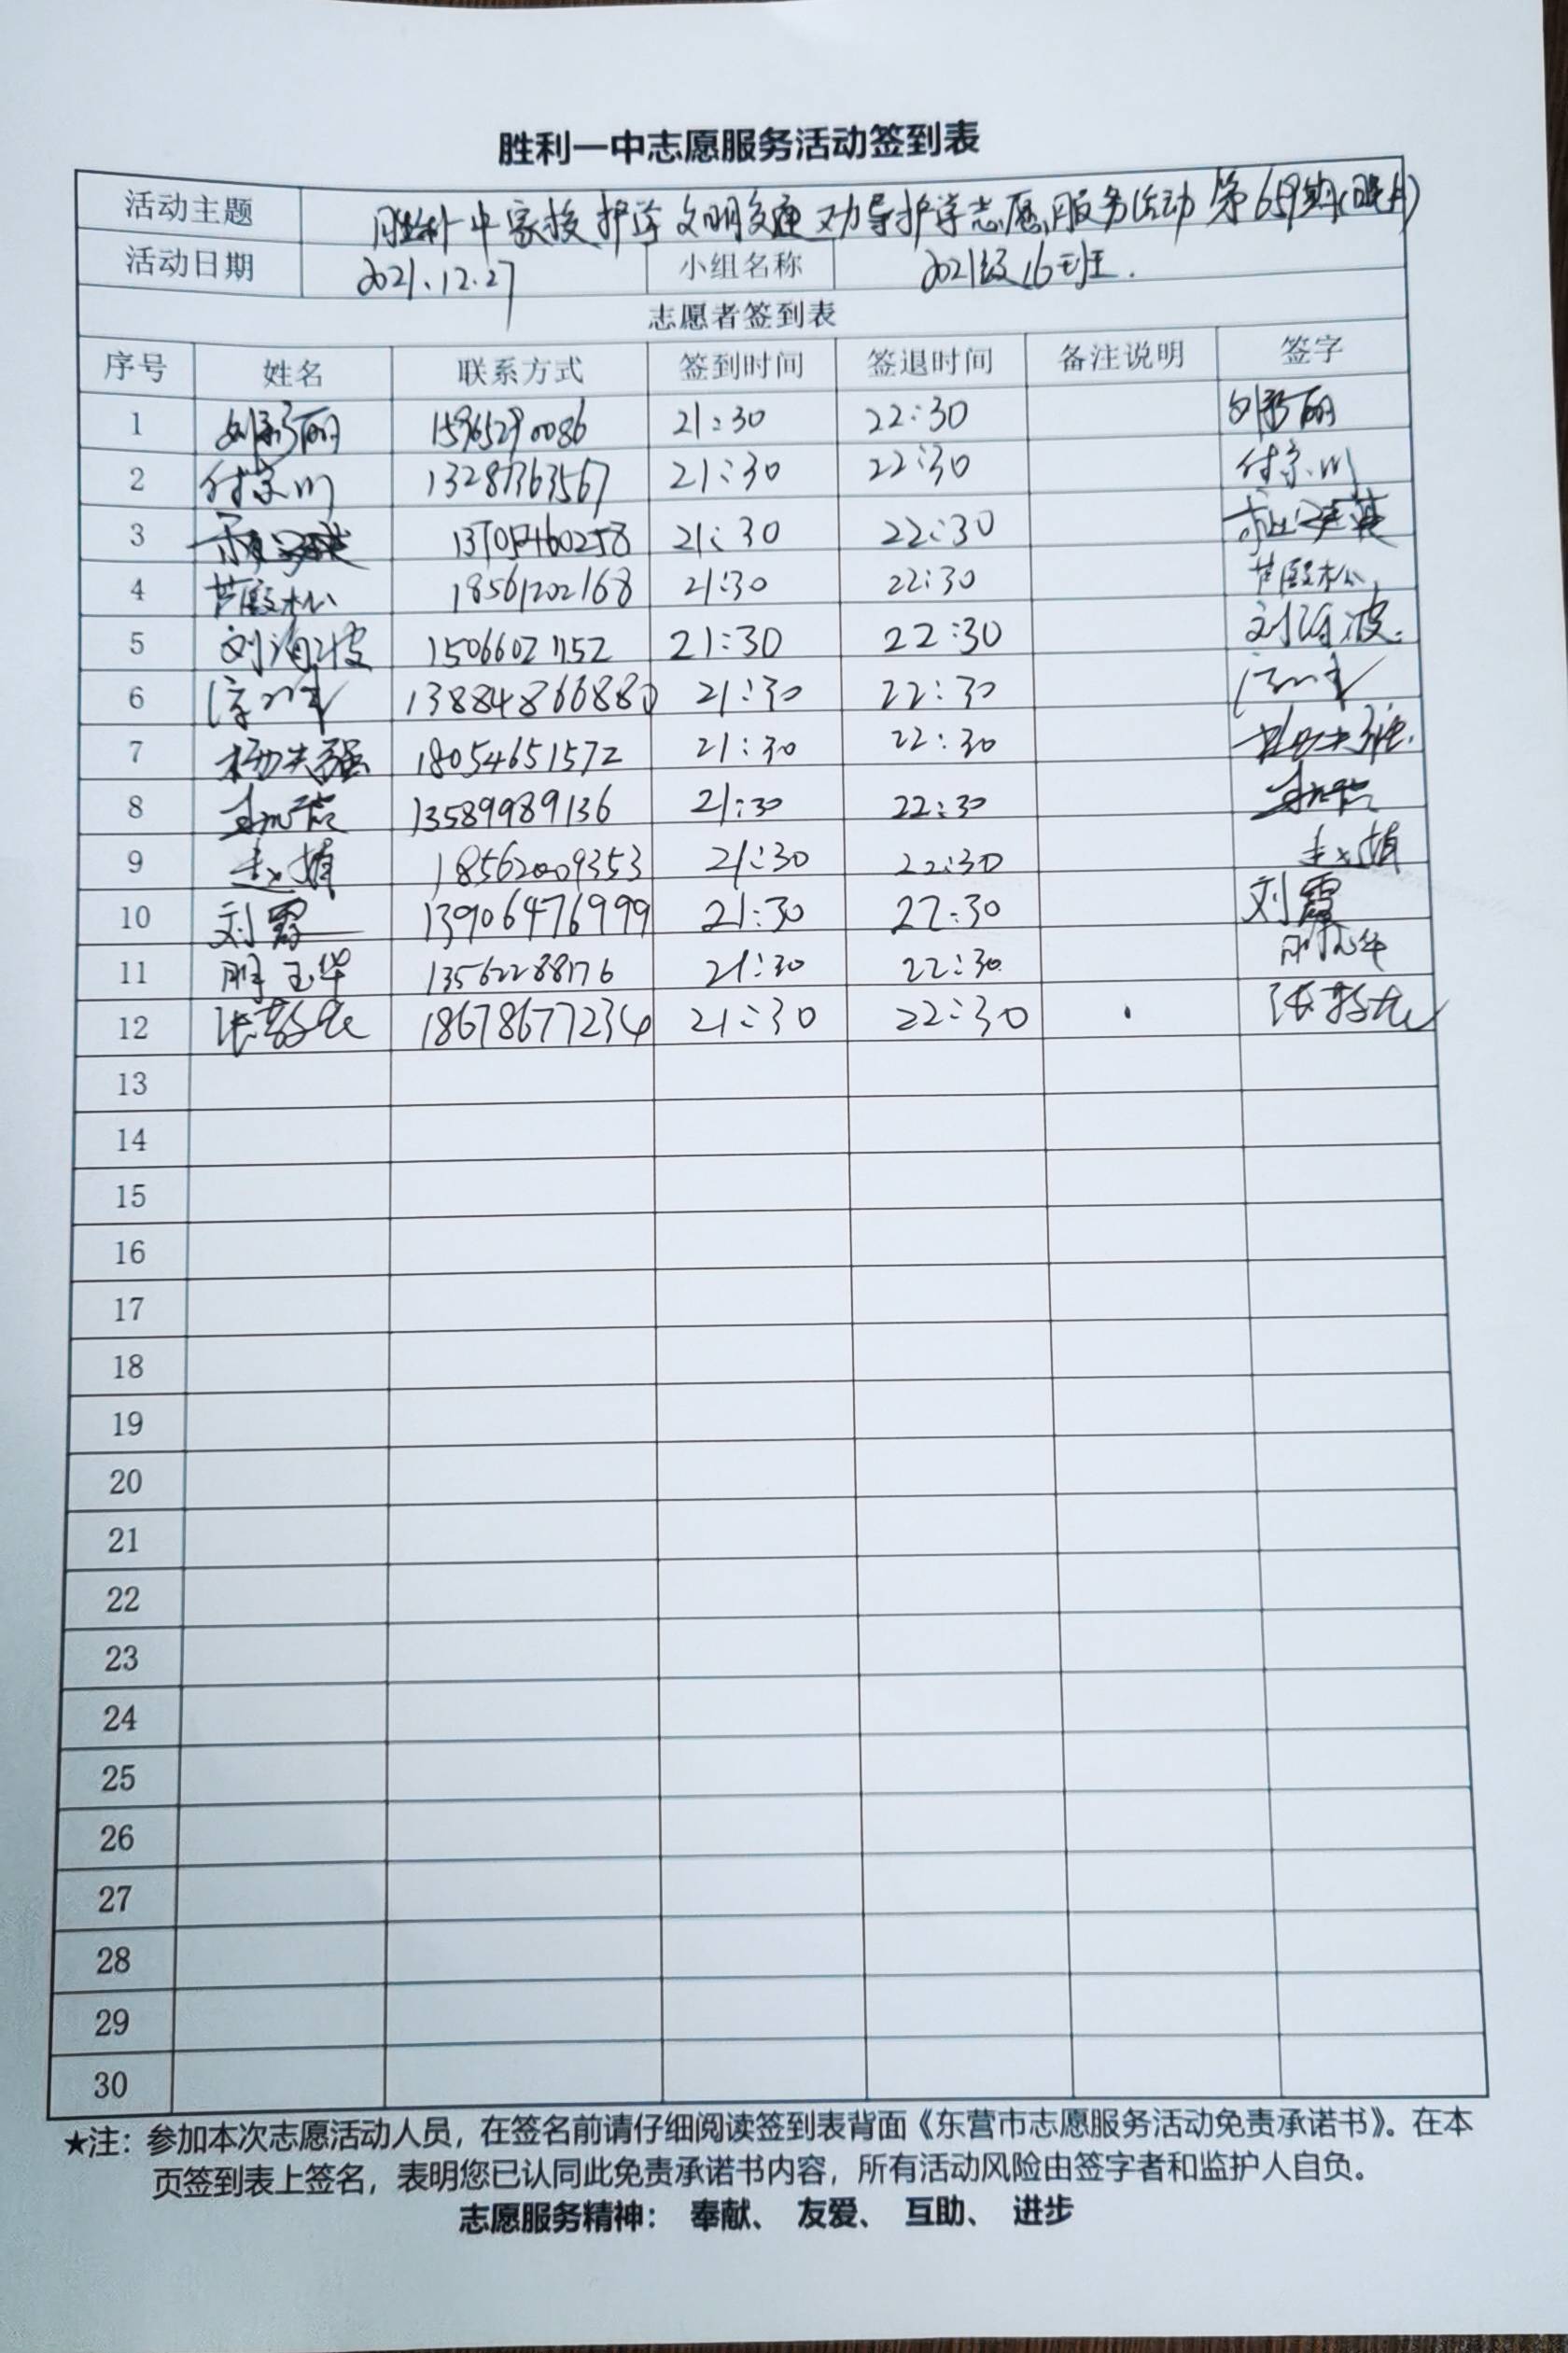 胜利一中志愿服务活动签到表
活动主题 胜利一中家校护学文明交通劝导护学志愿服务活动第659期(晚上)
活动日期 2021.12.27 小组名称 2021级16班.
志愿者签到表
序号 姓名 联系方式 签到时间 签退时间 备注说明 签字
1 刘彩丽 15965290086 21:30 22:30 刘彩丽
2 付宗川 13287363567 21:30 22:30 付宗川
3 21:30 22:30
4 芦殿松 18561202168 21:30 22:30 芦殿松
5 刘海波 15066021152 21:30 22:30 刘海波.
6 13884866880 21:30 22:30
7 18054651572 21:30 22:30
8 13589989136 21:30 22:30
9 18562009353 21:30 22:30
10 刘霞 13906476999 21:30 22:30 刘霞
11 13562288176 21:30 22:30
12 18678677234 21:30 22:30
13
14
15
16
17
18
19
20
21
22
23
24
25
26
27
28
29
30
★注：参加本次志愿活动人员，在签名前请仔细阅读签到表背面《东营市志愿服务活动免责承诺书》。在本
页签到表上签名，表明您已认同此免责承诺书内容，所有活动风险由签字者和监护人自负。
志愿服务精神： 奉献、 友爱、 互助、 进步